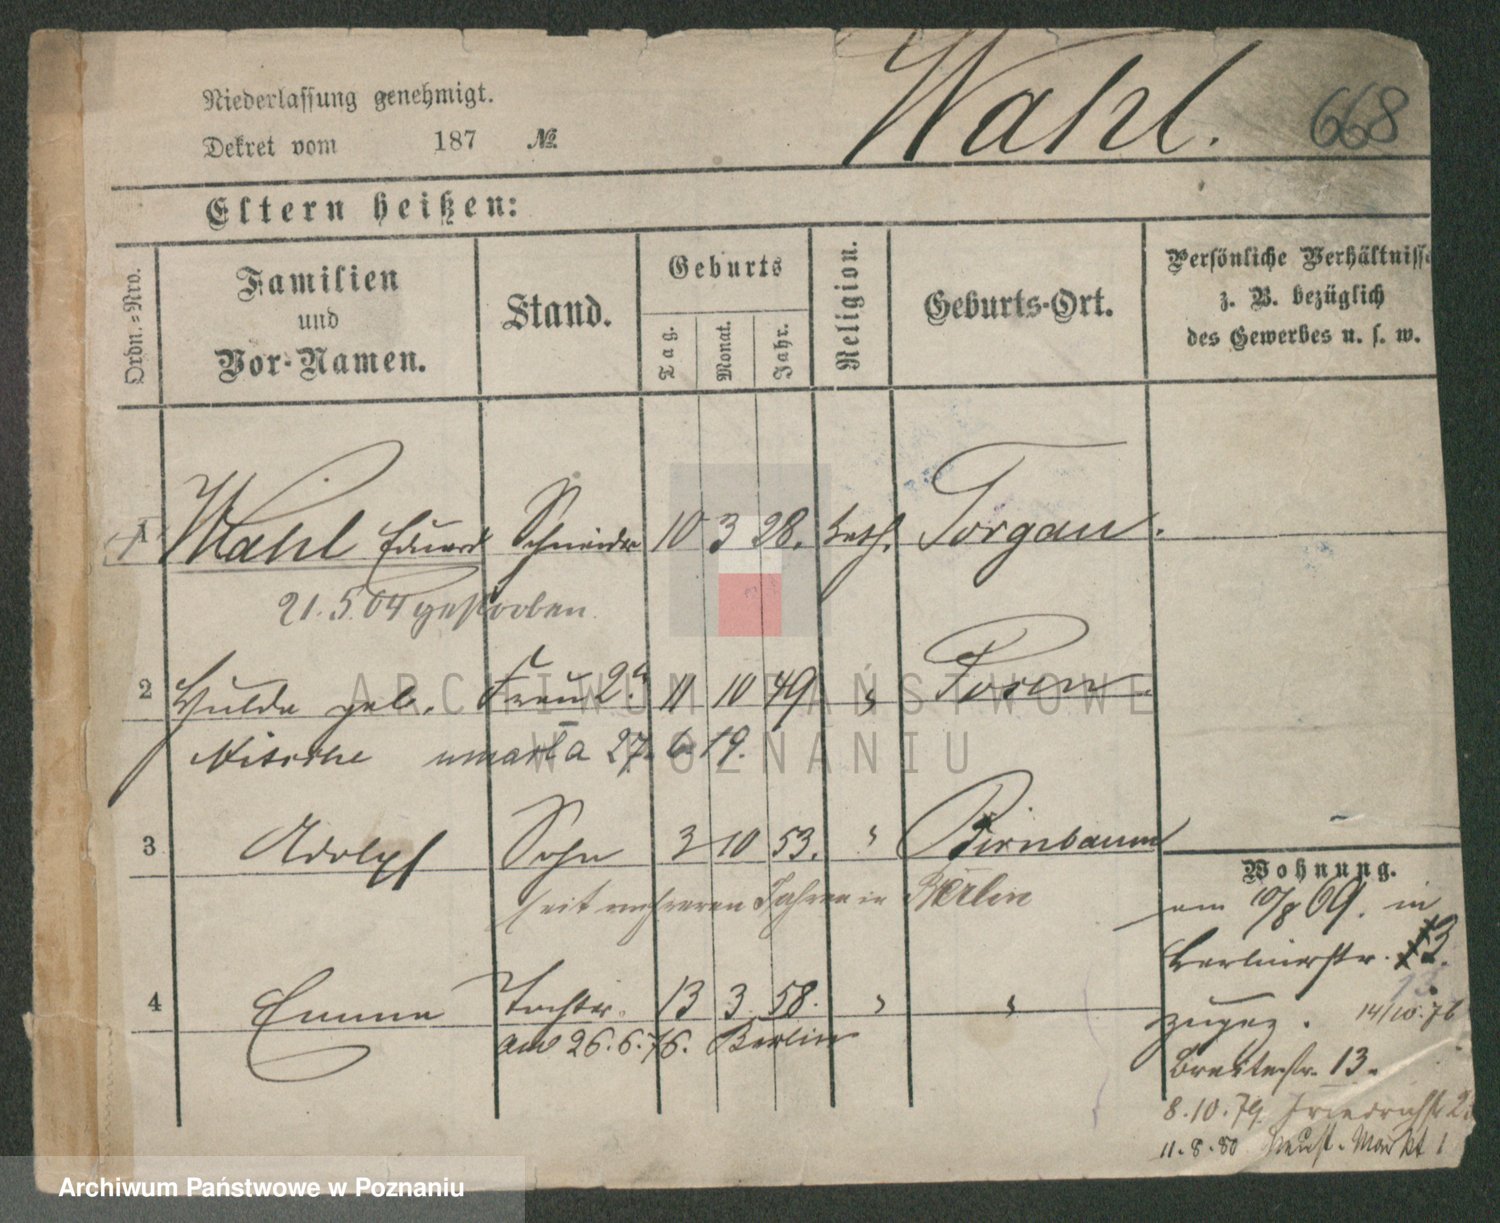 Niederlassung genehmigt.
Dekret vom 187 №
Wahl.
668
Eltern heißen:
Ordn.=Nro.
Familien und Vor-Namen.
Stand.
Geburts
Tag.
Monat.
Jahr.
Religion.
Geburts-Ort.
Persönliche Verhältnisse
z. B. bezüglich
des Gewerbes u. s. w.
1 Wahl Eduard Schneider 10 3 28. kath. Torgau.
21.5.04 gestorben.
2 Hulda geb. Frau 11 10 49 " Posen.
umarła 27. 6. 19.
3 Adolph Sohn 3 10 53. " Birnbaum
seit mehreren Jahren in Berlin
4 Emma Tochter. 13 3 58. " "
am 26.6.76. Berlin
Wohnung.
am 10/8 69. in
Berlinerstr. 13.
zugez. 14/10.76
Breitestr. 13.
8.10.79. Friedrichstr 2
11.8.80 Neust. Markt 1
ARCHIWUM PAŃSTWOWE
W POZNANIU
Archiwum Państwowe w Poznaniu